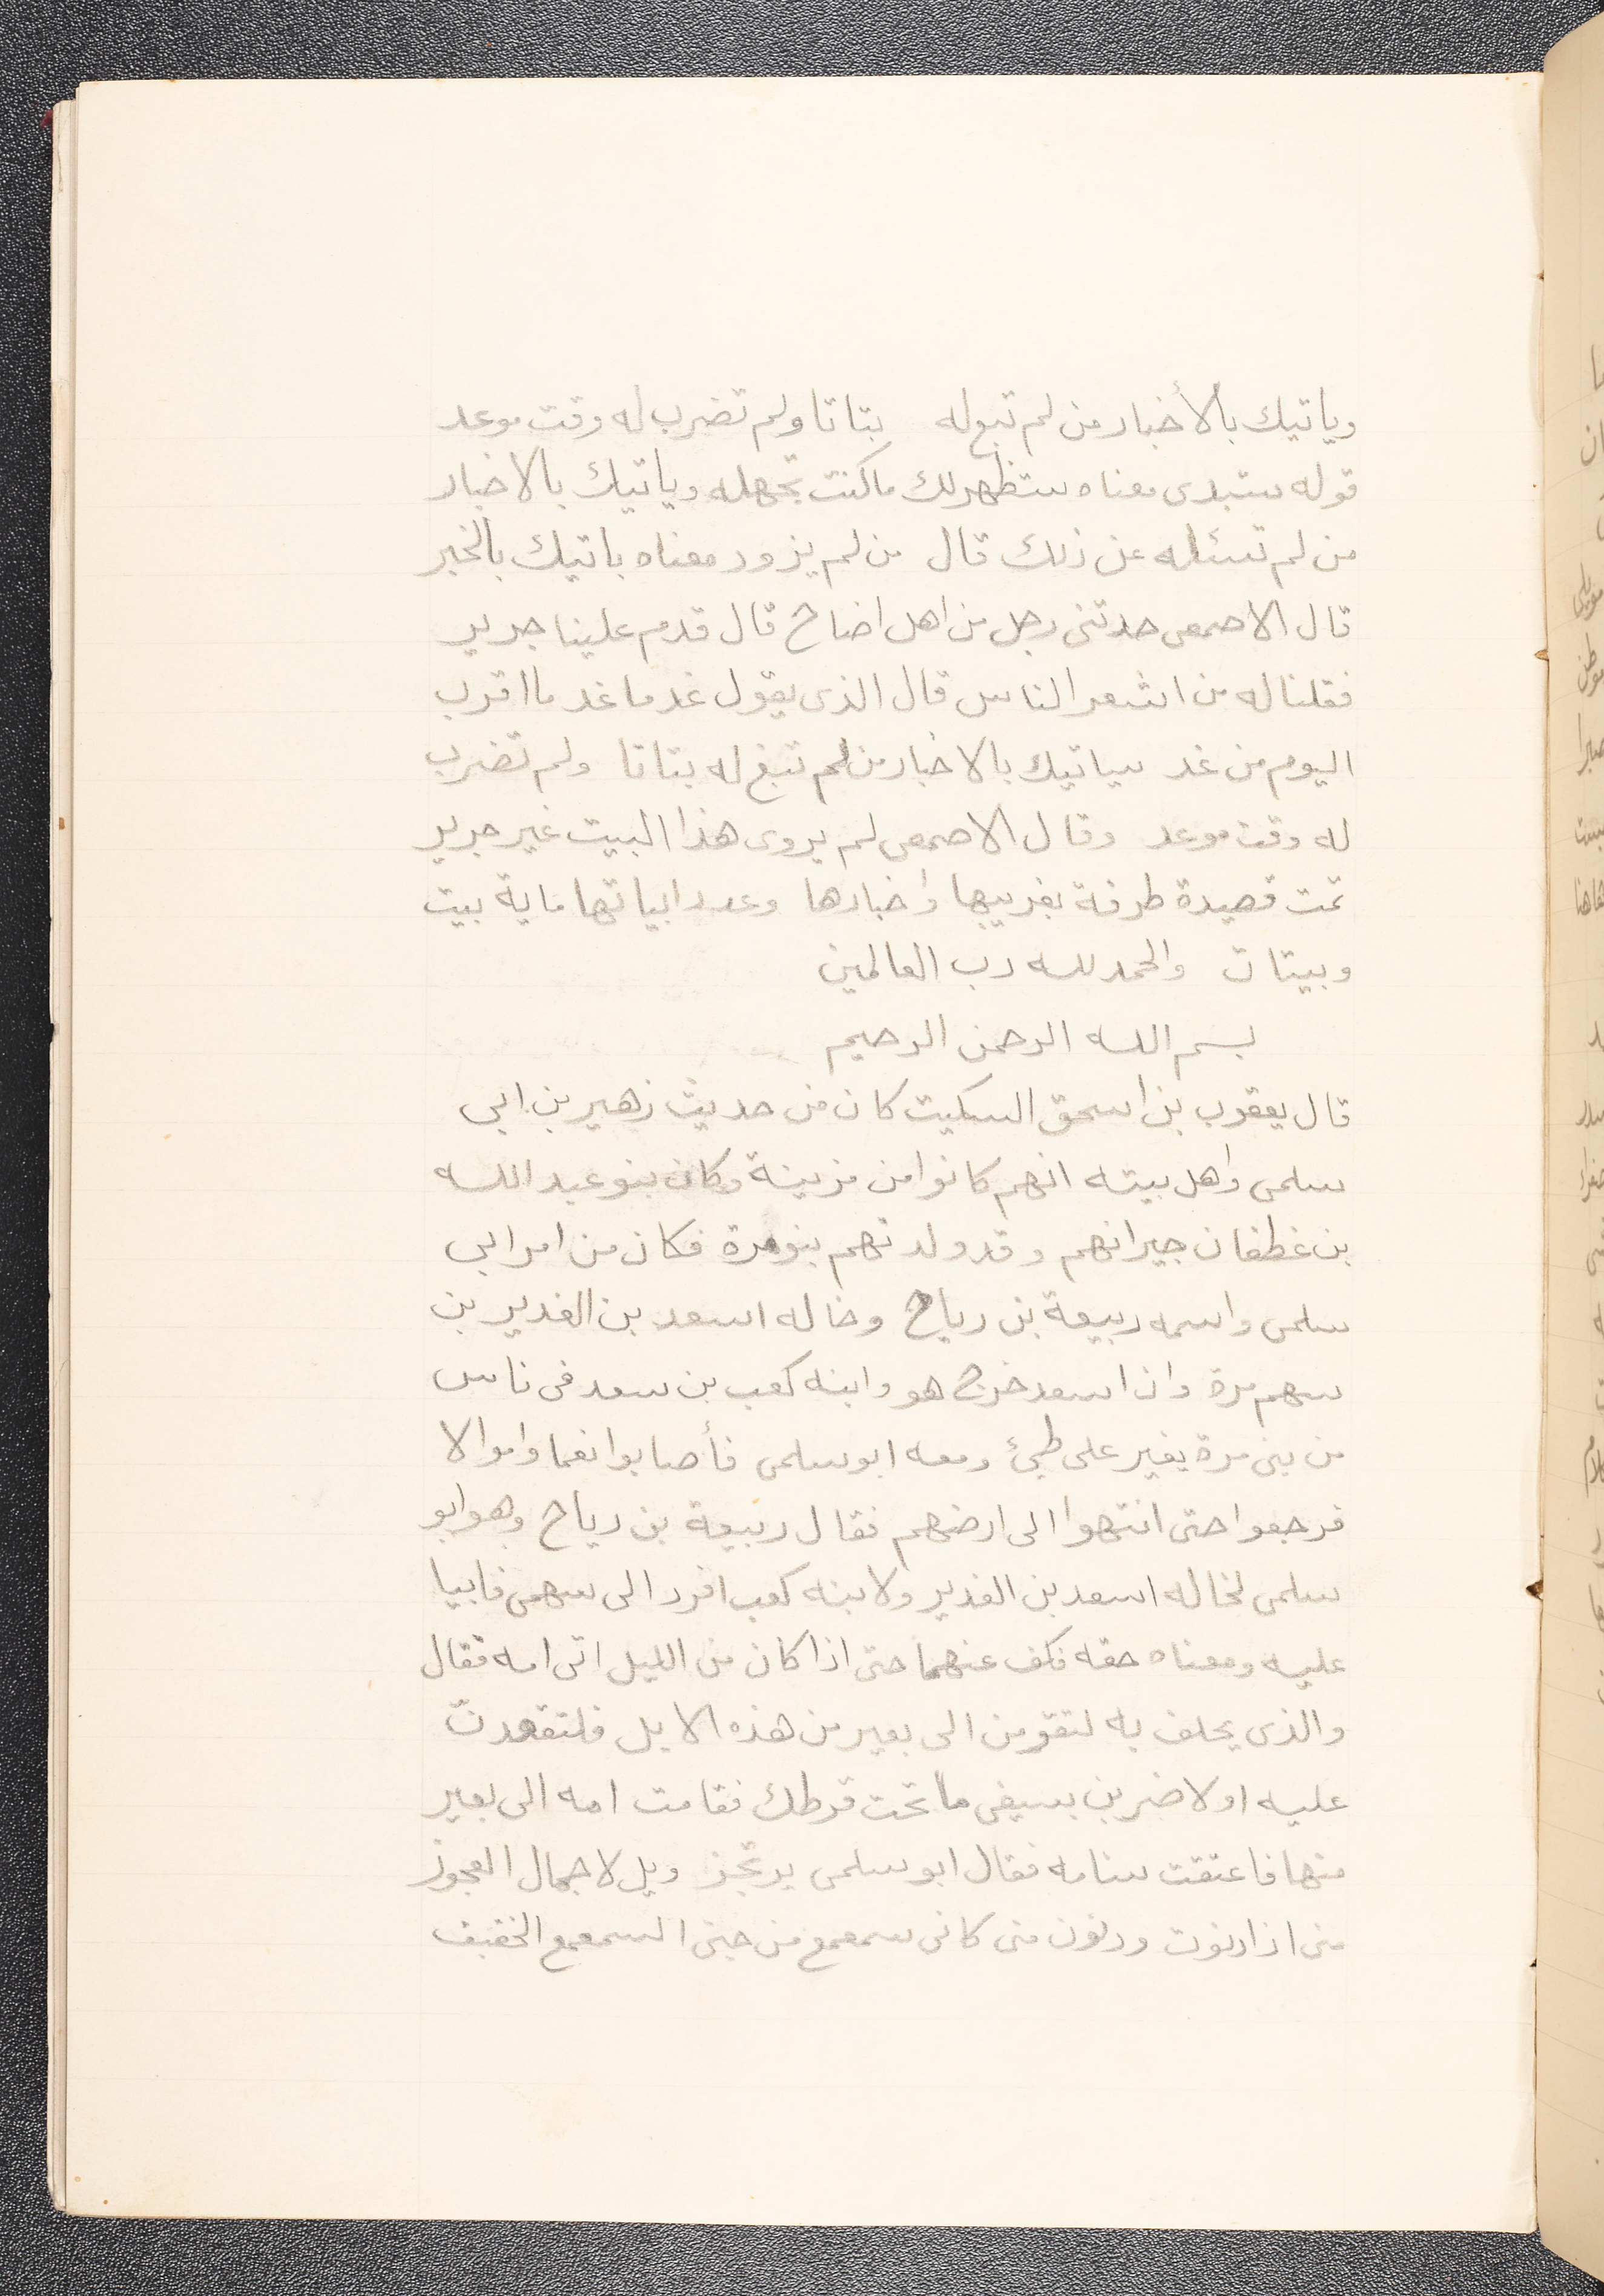 وياتيك بالأخبار من لم تبع له بتاتا ولم تضرب له وقت موعد
قوله ستبدى معناه ستظهر لك ما كنت تجهله وياتيك بالاخبار
من لم تسئله عن ذلك قال من لم يزود معناه ياتيك بالخبر
قال الاصمعى حدثنى رجل من اهل اضاخ قال قدم علينا جرير
فقلنا له من اشعر الناس قال الذى يقول غد ما غد ما اقرب
اليوم من غد سياتيك بالاخبار من لم تبغ له بتاتا ولم تضرب
له وقت موعد وقال الاصمعى لم يروى هذا البيت غير جرير
تمت قصيدة طرفة بغريبها واخبارها وعدد ابياتها ماية بيت
وبيتان والحمد لله رب العالمين
بسم الله الرحمن الرحيم
قال يعقوب بن اسحق السكيت كان من حديث زهير بن ابى
سلمى واهل بيته انهم كانوا من مزينة وكان بنو عبد الله
بن غطفان جيرانهم وقد ولدتهم بنو مرة فكان من امر ابى
سلمى واسمه ربيعة بن رياح وخاله اسعد بن الغدير بن
سهم مرة وان اسعد خرج هو وابنه كعب بن سعد فى ناس
من بنى مرة يغير على طيئ ومعه ابو سلمى فأصابوا نعما واموالا
فرجعوا حتى انتهوا الى ارضهم فقال ربيعة بن رياح وهو ابو
سلمى لخاله اسعد بن الغدير ولابنه كعب افرد الى سهمى فابيا
عليه ومعناه حقه فكف عنهما حتى اذا كان من الليل اتى امه فقال
والذى يحلف به لتقومن الى بعير من هذه الابل فلتقعدن
عليه او لاضربن بسيفى ما تحت قرطك فقامت امه الى بعير
منها فاعتقت سنامه فقال ابو سلمى يرتجز ويل لاجمال العجوز
منى اذا دنوت ودنون منى كانى سمعمع من جنى السمعمع الخفيف